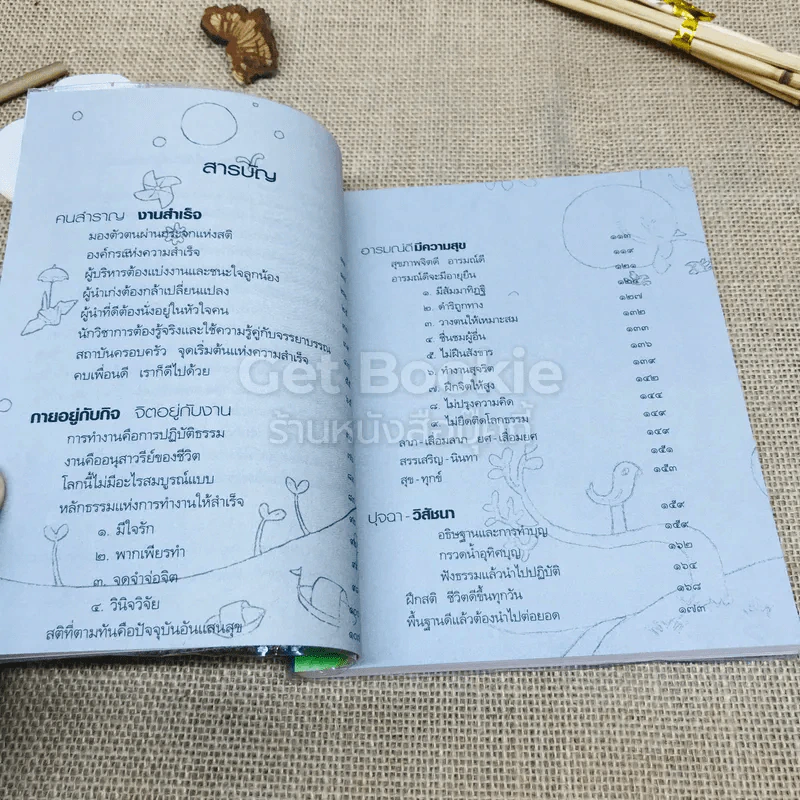 สารบัญ
คนสำราญ งานสำเร็จ
มองตัวตนผ่านกระจกแห่งสติ
องค์กรแห่งความสำเร็จ
ผู้บริหารต้องแบ่งงานและชนะใจลูกน้อง
ผู้นำเก่งต้องกล้าเปลี่ยนแปลง
ผู้นำที่ดีต้องนั่งอยู่ในหัวใจคน
นักวิชาการต้องรู้จริงและใช้ความรู้คู่กับจรรยาบรรณ
สถาบันครอบครัว จุดเริ่มต้นแห่งความสำเร็จ
คบเพื่อนดี เราก็ดีไปด้วย
กายอยู่กับกิจ จิตอยู่กับงาน
การทำงานคือการปฏิบัติธรรม
งานคืออนุสาวรีย์ของชีวิต
โลกนี้ไม่มีอะไรสมบูรณ์แบบ
หลักธรรมแห่งการทำงานให้สำเร็จ
๑. มีใจรัก
๒. พากเพียรทำ
๓. จดจำจ่อจิต
๔. วินิจวิจัย
สติที่ตามทันคือปัจจุบันอันแสนสุข
อารมณ์ดีมีความสุข ๑๑๓
สุขภาพจิตดี อารมณ์ดี ๑๑๙
อารมณ์ดีจะมีอายุยืน ๑๒๑
๑. มีสัมมาทิฏฐิ ๑๒๔
๒. ดำริถูกทาง ๑๒๗
๓. วางตนให้เหมาะสม ๑๓๒
๔. ชื่นชมผู้อื่น ๑๓๓
๕. ไม่ฝืนสังขาร ๑๓๖
๖. ทำงานสุจริต ๑๓๙
๗. ฝึกจิตให้สูง ๑๔๒
๘. ไม่ปรุงความคิด ๑๔๔
ไม่ยึดติดโลกธรรม ๑๔๙
ลาภ-เสื่อมลาภ ยศ-เสื่อมยศ ๑๔๙
สรรเสริญ-นินทา ๑๕๑
สุข-ทุกข์ ๑๕๓
ปุจฉา-วิสัชนา ๑๕๙
อธิษฐานและการทำบุญ ๑๕๙
กรวดน้ำอุทิศบุญ ๑๖๒
ฟังธรรมแล้วนำไปปฏิบัติ ๑๖๔
ฝึกสติ ชีวิตดีขึ้นทุกวัน ๑๖๘
พื้นฐานดีแล้วต้องนำไปต่อยอด ๑๗๓
Get Bookie
ร้านหนังสือมุกนี้